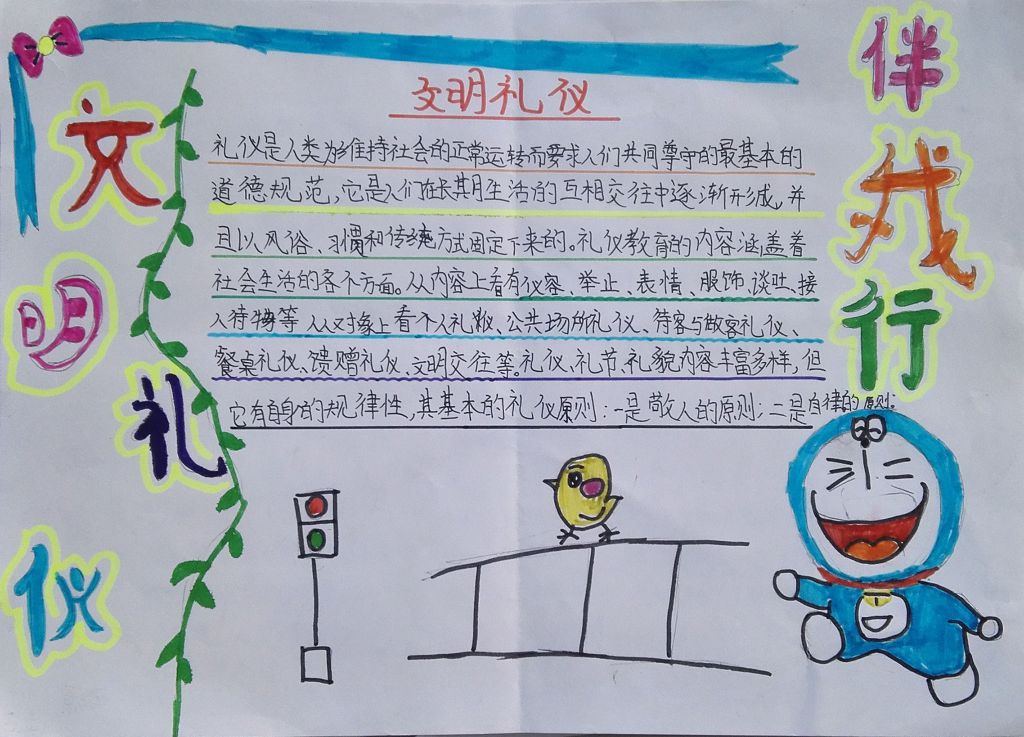 文明礼仪
伴我行
文明礼仪
礼仪是人类为维持社会的正常运转而要求人们共同尊守的最基本的
道德规范，它是人们在长期生活的互相交往中逐渐形成，并
且以风俗、习惯和传统方式固定下来的。礼仪教育的内容涵盖着
社会生活的各个方面。从内容上看有仪容、举止、表情、服饰、谈吐、接
人待物等 从对象上看个人礼仪、公共场所礼仪、待客与做客礼仪、
餐桌礼仪、馈赠礼仪、文明交往等。礼仪、礼节、礼貌内容丰富多样，但
它有自身的规律性，其基本的礼仪原则：一是敬人的原则；二是自律的原则。